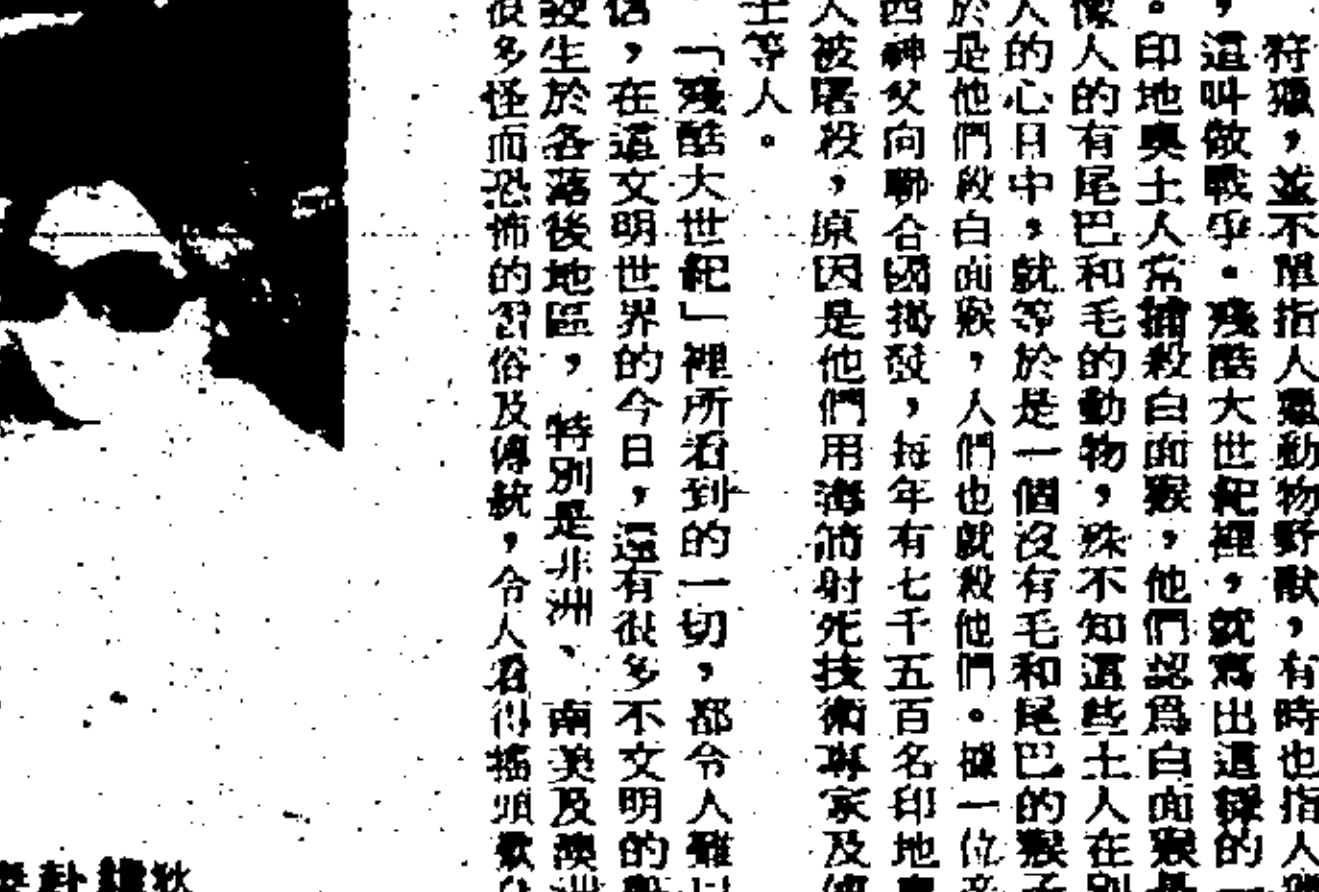 狩獵,並不單指人獵動物野獸,有時也指人
,這叫做戰爭。殘酷大世紀裡,就寫出這樣的一
。印地奧土人常捕殺白面猴,他們認爲白面猴
像人的有尾巴和毛的動物,殊不知這些土人在別
人的心目中,就等於是一個沒有毛和尾巴的猴子
於是他們殺白面猴,人們也就殺他們。據一位
西神父向聯合國揭發,每年有七千五百名印地奧
人被屠殺,原因是他們用海筒射死技術專家及
士等人。
「殘酷大世紀」裡所看到的一切,都令人難以
信,在這文明世界的今日,還有很多不文明的
發生於各落後地區,特別是非洲、南美及澳洲
很多怪而恐怖的習俗及傳統,令人看得搖頭歎
狄